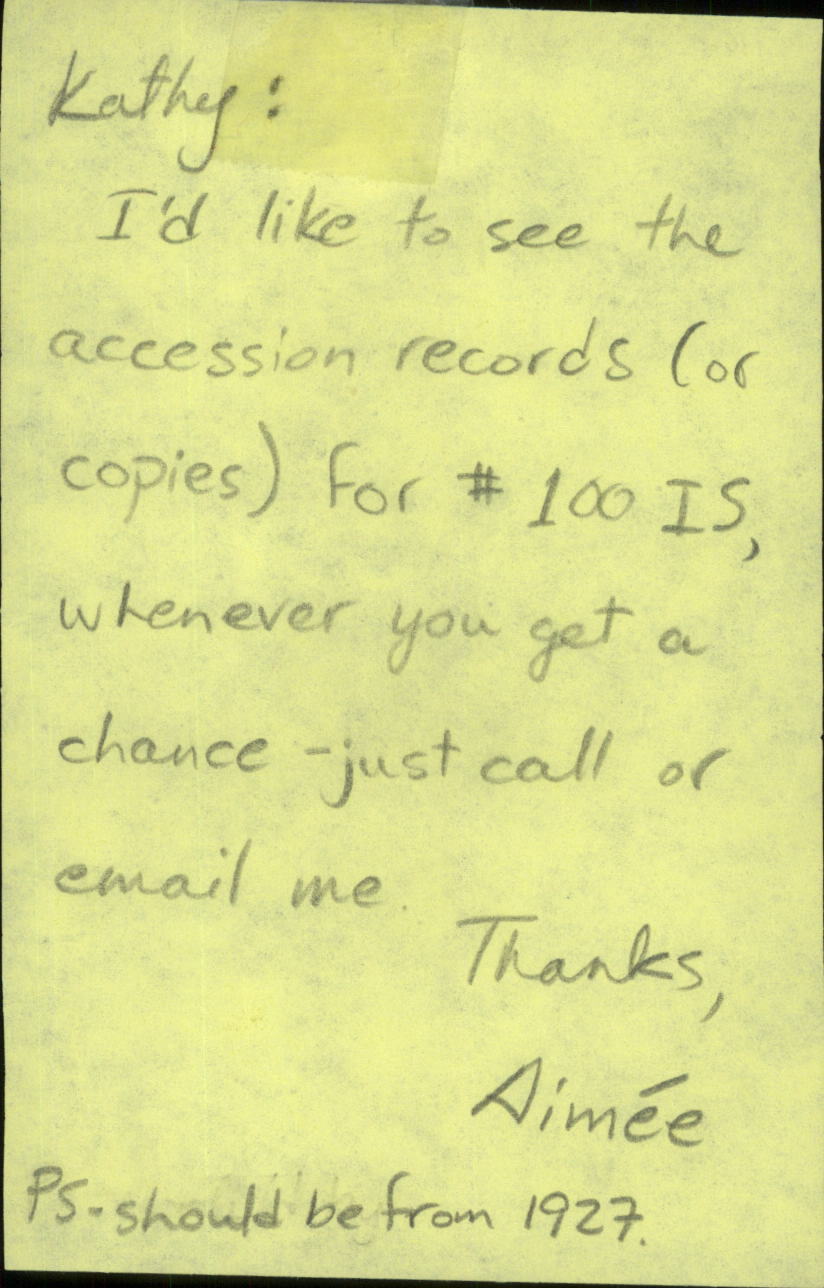 Kathy:
I'd like to see the
accession records (or
copies) for # 100 IS,
whenever you get a
chance - just call or
email me.
Thanks,
Aimée
PS - should be from 1927.